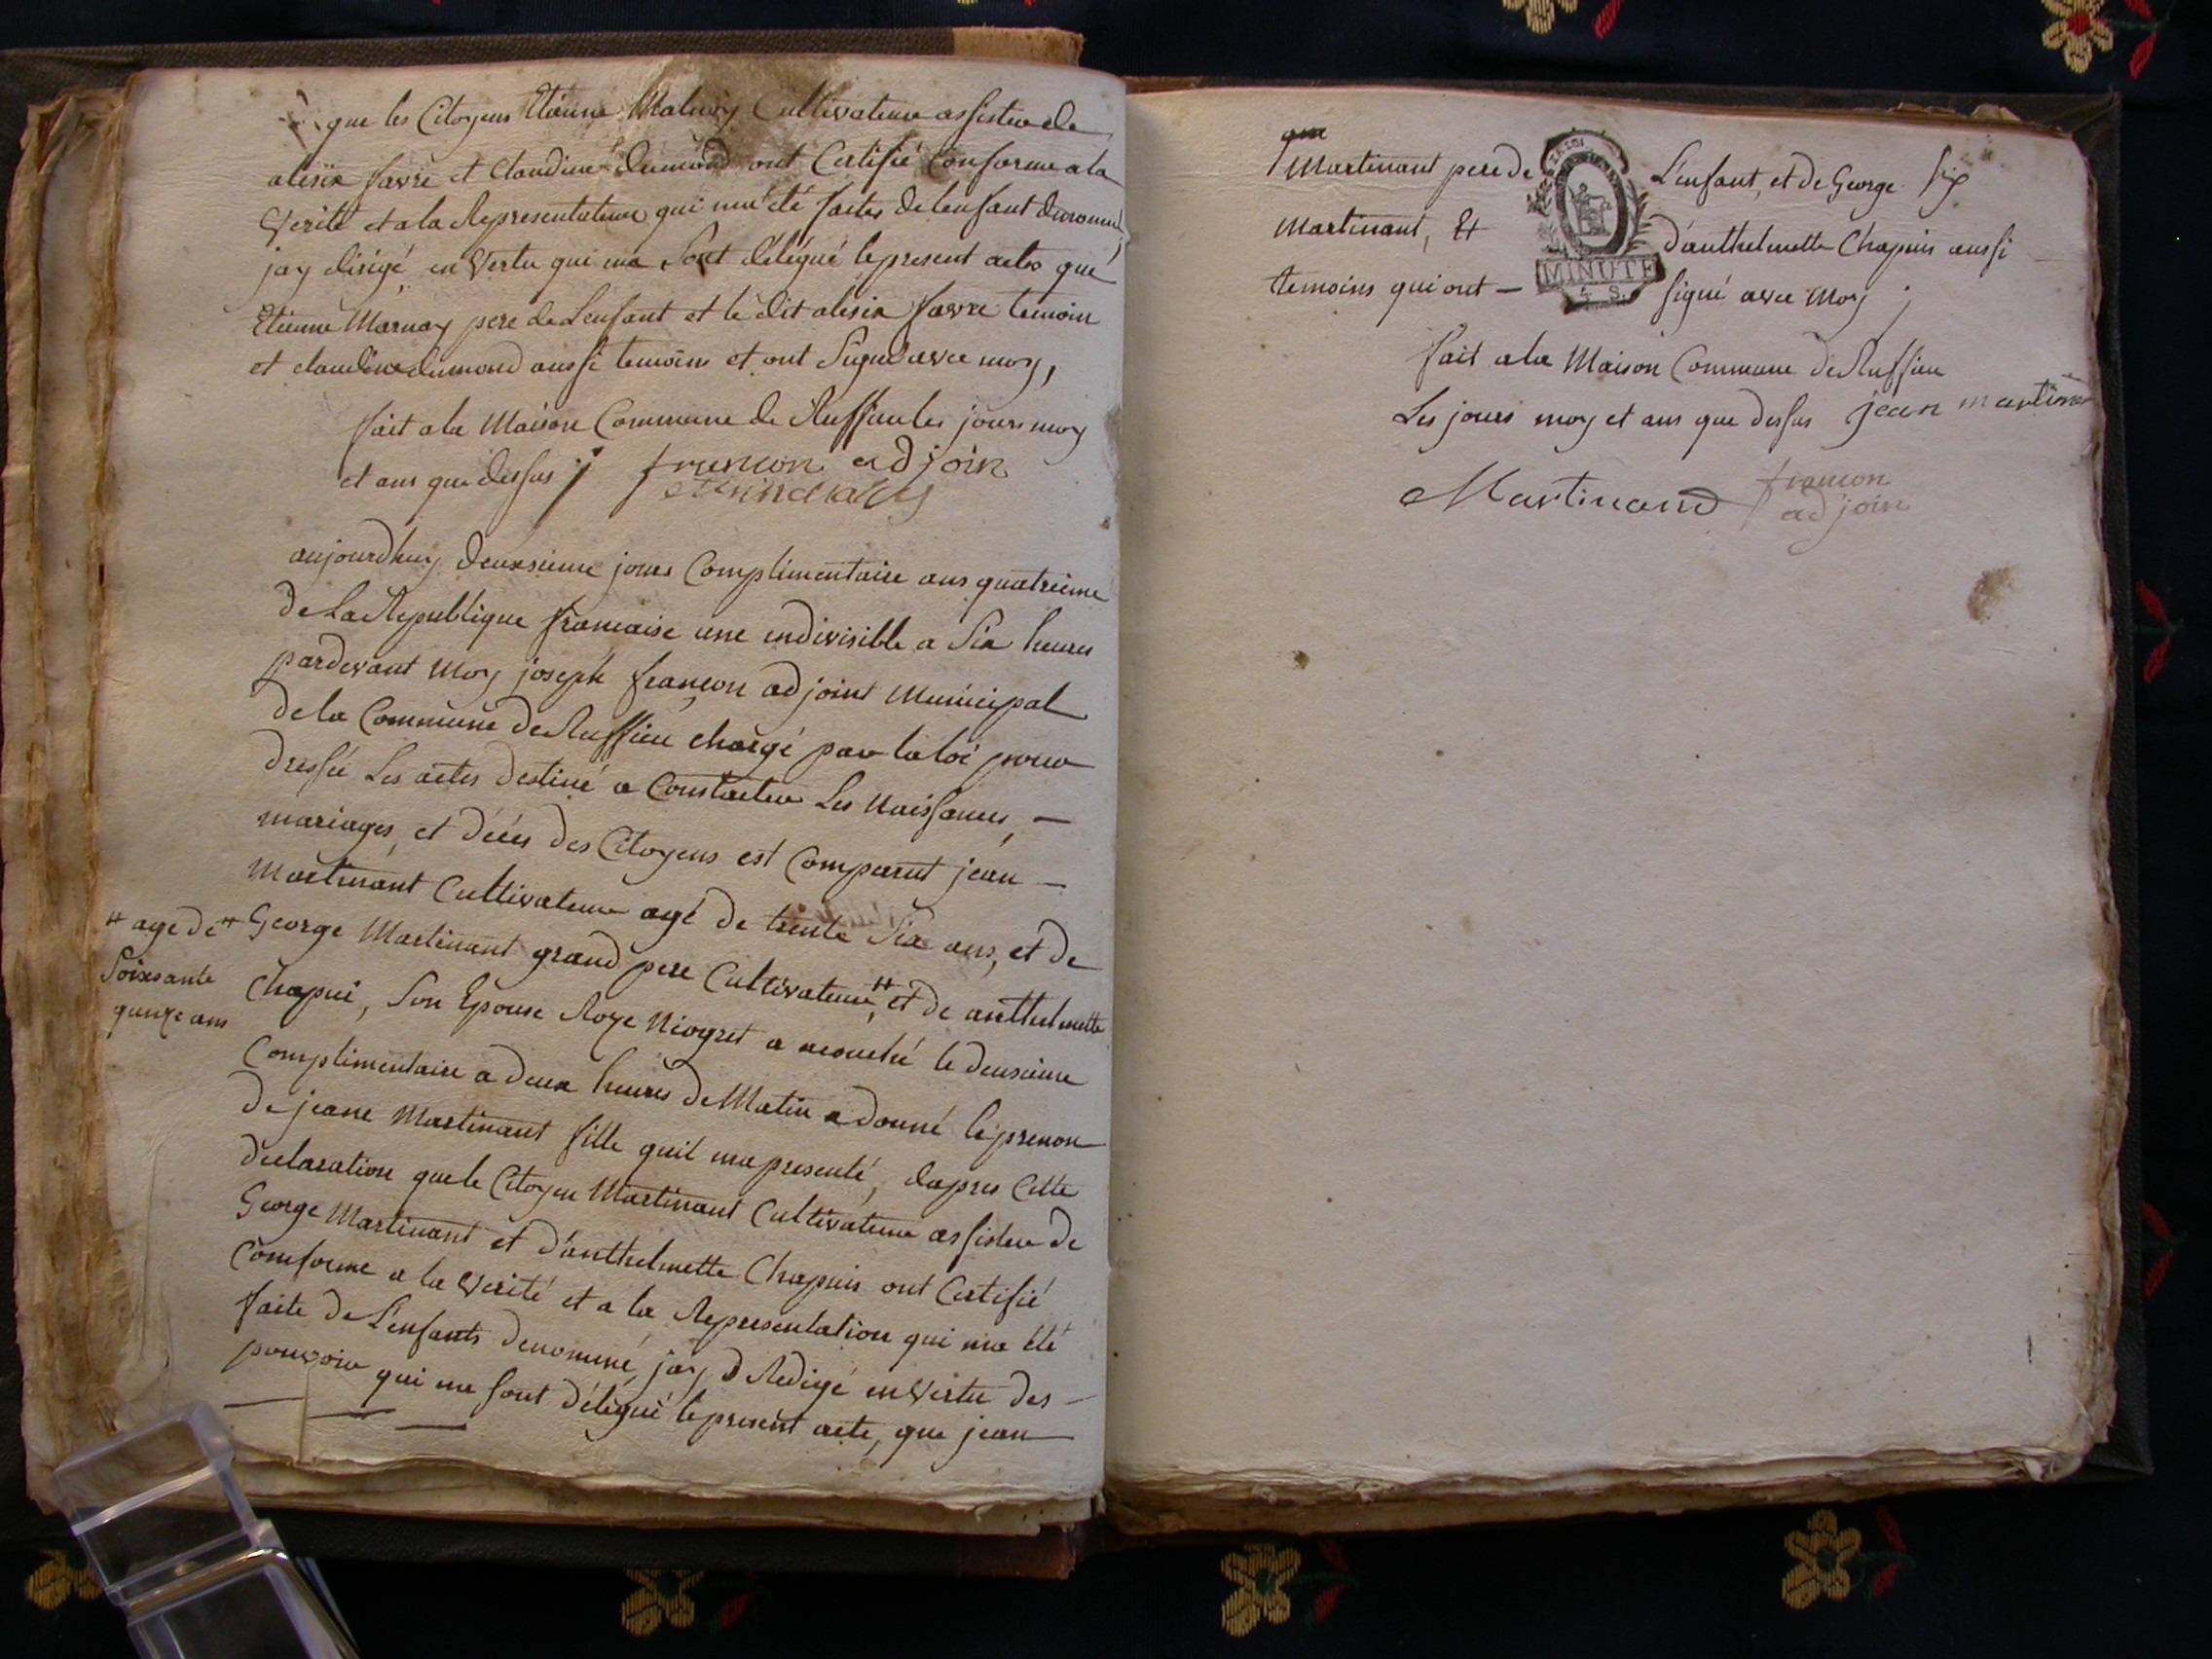 que les Citoyens Etienne Cultivateur assisteu de
alexix favre et Claudine dumond ont Certifié Conforme a la
Verité et a la Representateur qui ma été faites de lenfant denommé
jay dirigé en Vertu qui ma Sont délégué le present actes que
Etienne Marnay pere de Lenfant et le dit alexix favre temoin
et claudine dumond aussi temoins et ont Signé avec moy,
fait a la Maison Commune de Ruffieu les jours moy
et ans que dessus françon adjoin
aujourdhuy deuxsieme jours Complimentaire ans quatrieme
de La Republique francaise une indivisible a Six heures
pardevant Moy joseph françon adjoint Municipal
de la Commune de Ruffieu chargé par la loi pour
dressé Les actes destiné a Constateu Les Naissances, —
mariages, et déces des Citoyens est Comparut jean —
Martinant Cultivateur agé de trente Six ans, et de
George Martinant grand pere Cultivateur, # et de anthelmette
# age de #
Soixsante
quinze ans
Chapui, Son Epouse Roze Niogret a acouché le deuxsieme
Complimentaire a deux heures de Matin a donné le prenon
de jeane Martinant fille quil ma presenté, dapres Cette
declaration que le Citoyen Martinant Cultivateur assisteu de
George Martinant et d'anthelmette Chapuis ont Certifié
Comforme a la Verité et a la Representation qui ma été
faite de L'enfants denommé, jay d Redigé en Vertu des —
pouvoir qui me sont délégué le present acte, que jean
que
Martinant pere de L'enfant, et de George
Martinant, Et d'anthelmette Chapuis aussi
temoins qui ont — Signé avec Moy
MINUTE
4 S.
fait a la Maison Commune de Ruffieu
Les jours moy et ans que dessus jean martinan
Martinand françon
adjoin